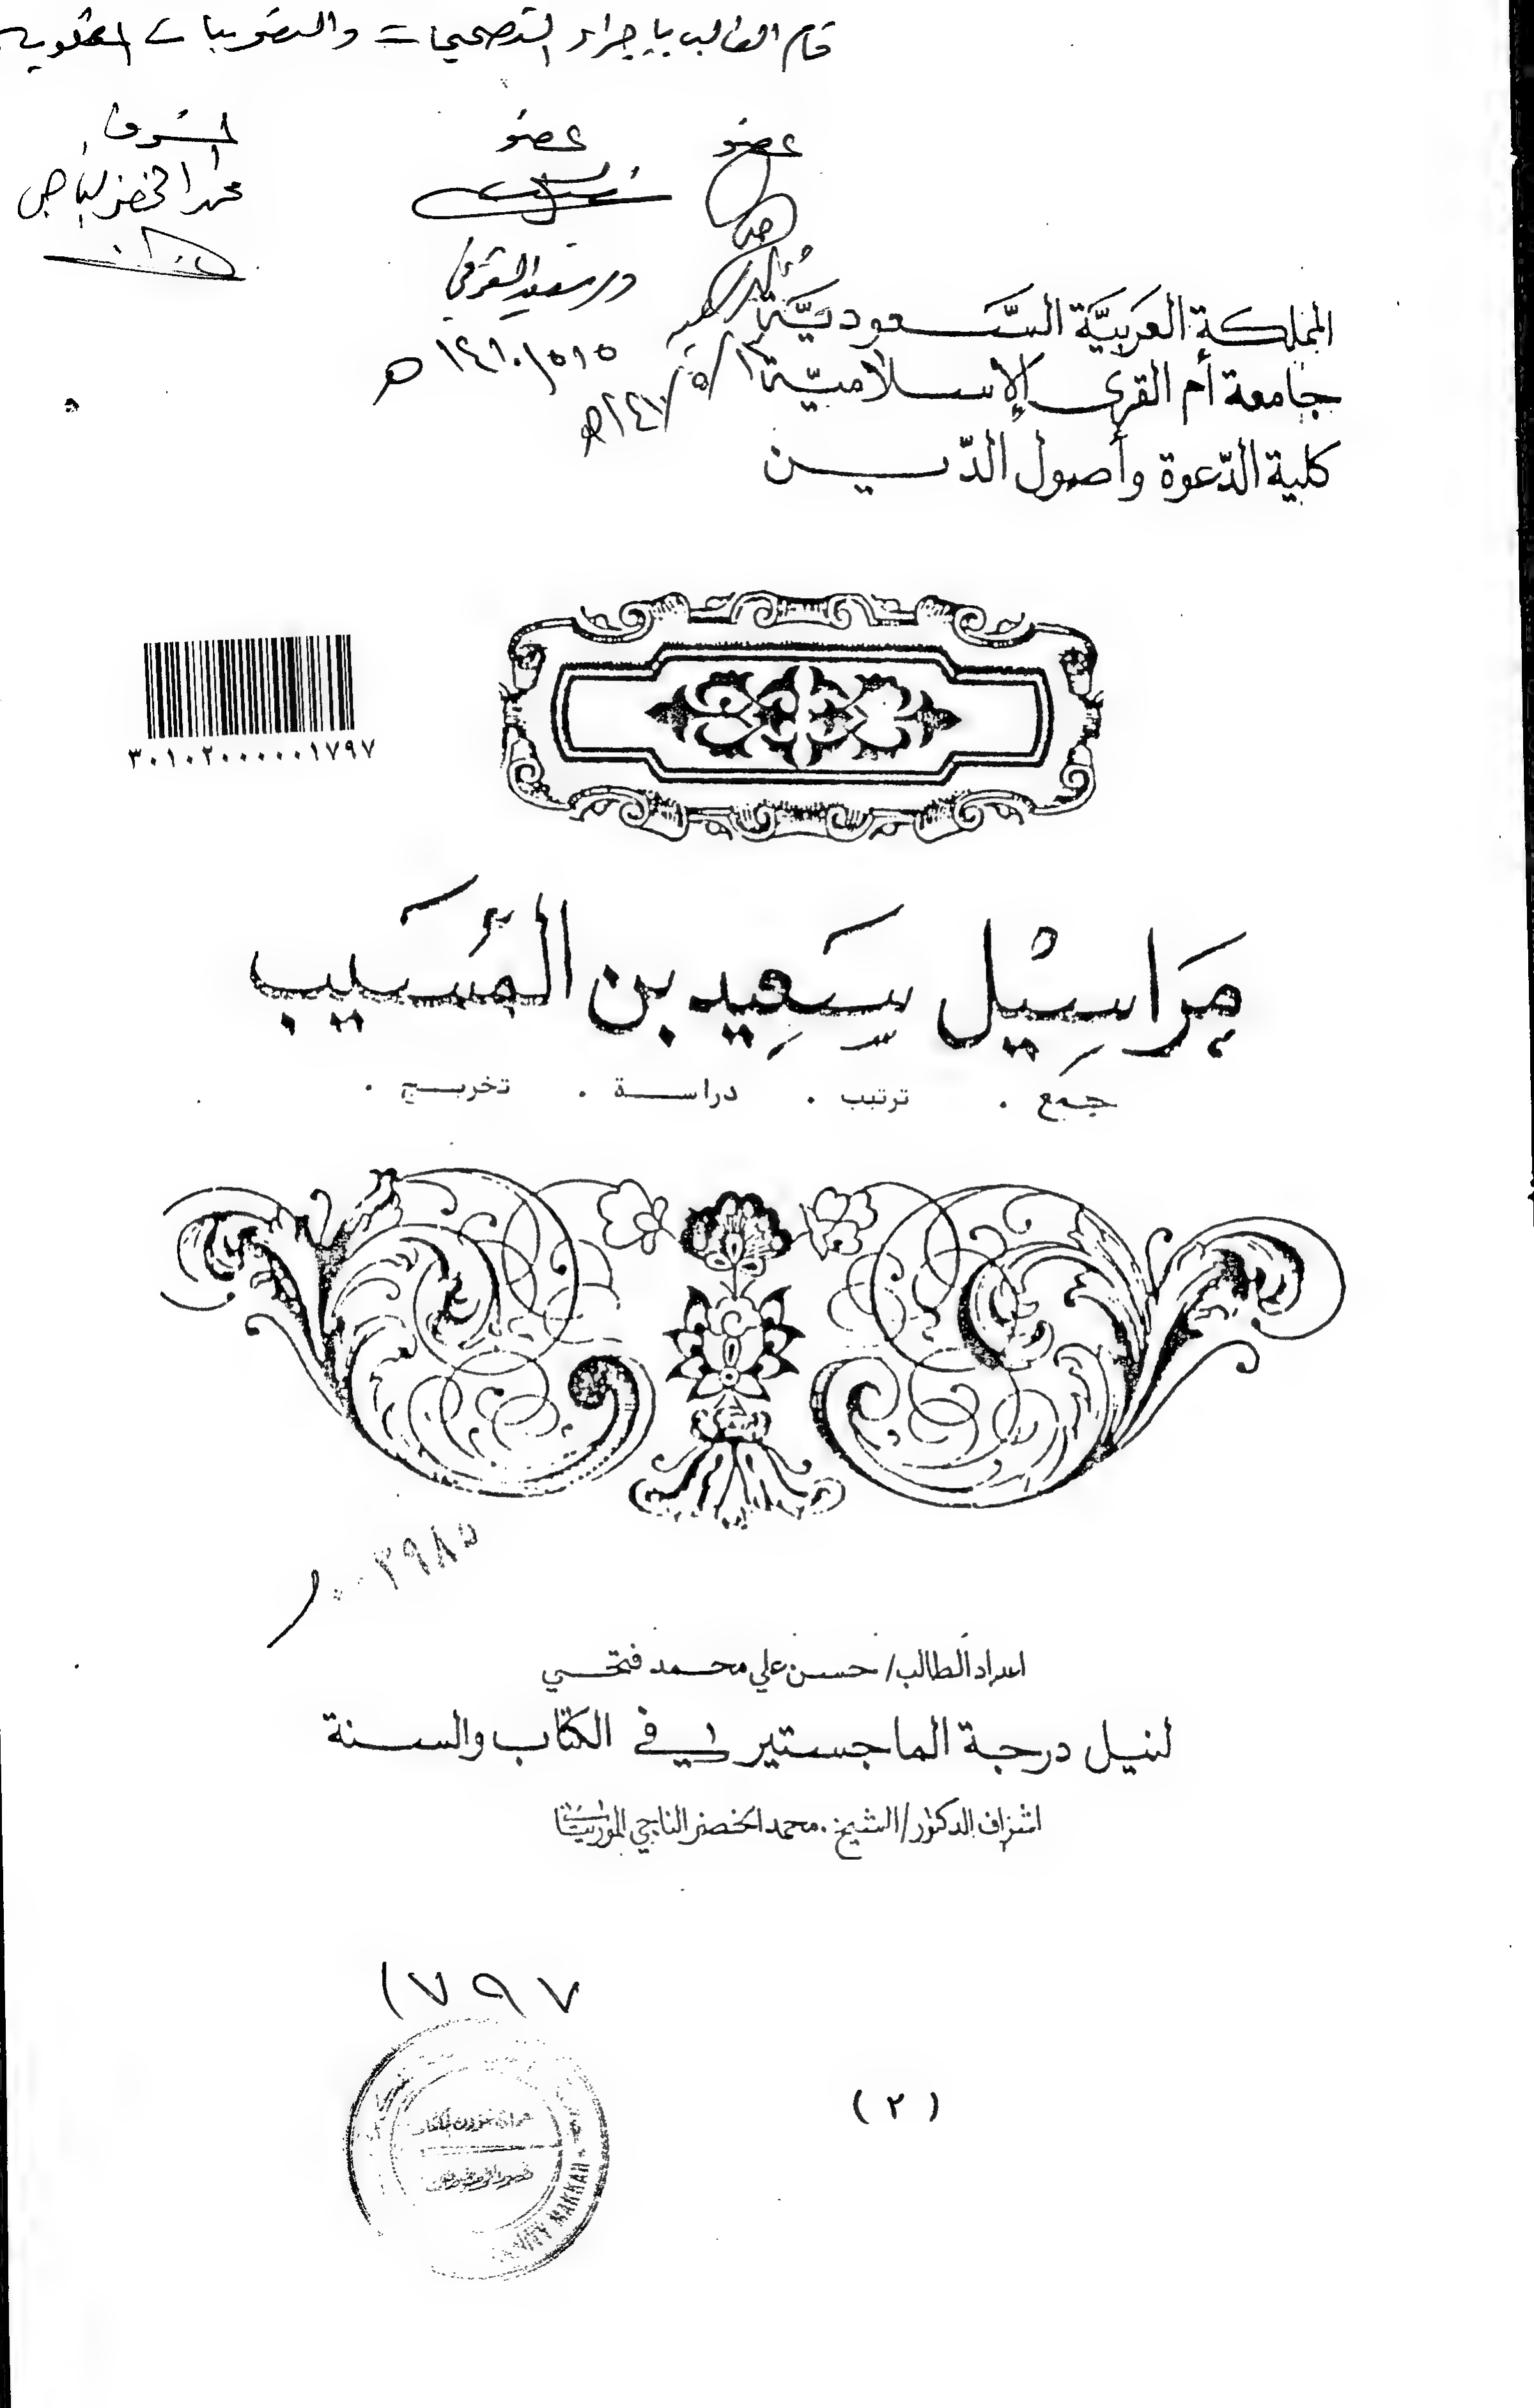 قام الطالب بإجراء التصحيحات والتصويبات المطلوبة
عضو
عضو
المشرف
محمد الخضر الناجي
المملكة العربيَّة السَّعوديَّة
جامعة أم القرى الإسلاميّة
كلية الدّعوة وأصول الدّين
١٤١٠/٥/٥ هـ
٣٠١٠٢٠٠٠٠٠٠١٧٩٧
مَراسِيْل سَعِيد بن المُسَيب
جمع . ترتيب . دراسة . تخريج .
اعداد الطالب / حسن علي محمد فتحي
لنيل درجة الماجستير في الكتاب والسنة
اشراف الدكتور / الشيخ . محمد الخضر الناجي الموريتاني
١٧٩٧
( ٢ )
MAKKAH